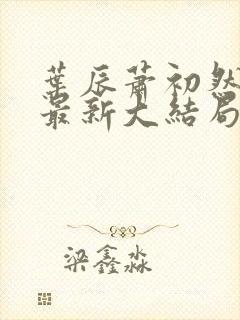 葉辰蕭初然
最新大結局
梁鑫淼